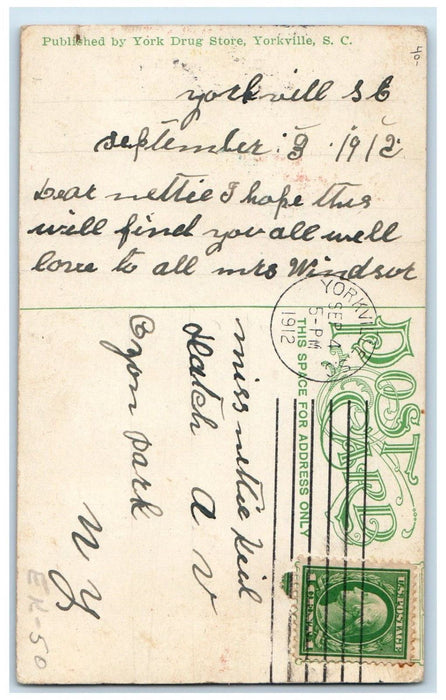 Published by York Drug Store, Yorkville, S. C.
40-
yorkvill S C
september 3 1912
Dear nettie I hope this
will find you all well
love to all mrs Windsor
POST CARD
THIS SPACE FOR ADDRESS ONLY
YORKVILLE
SEP 4
5-PM
1912
S.C.
miss nettie
Hatch a v
Ozon park
N Y
U.S. POSTAGE
1 CENT 1
EK-50